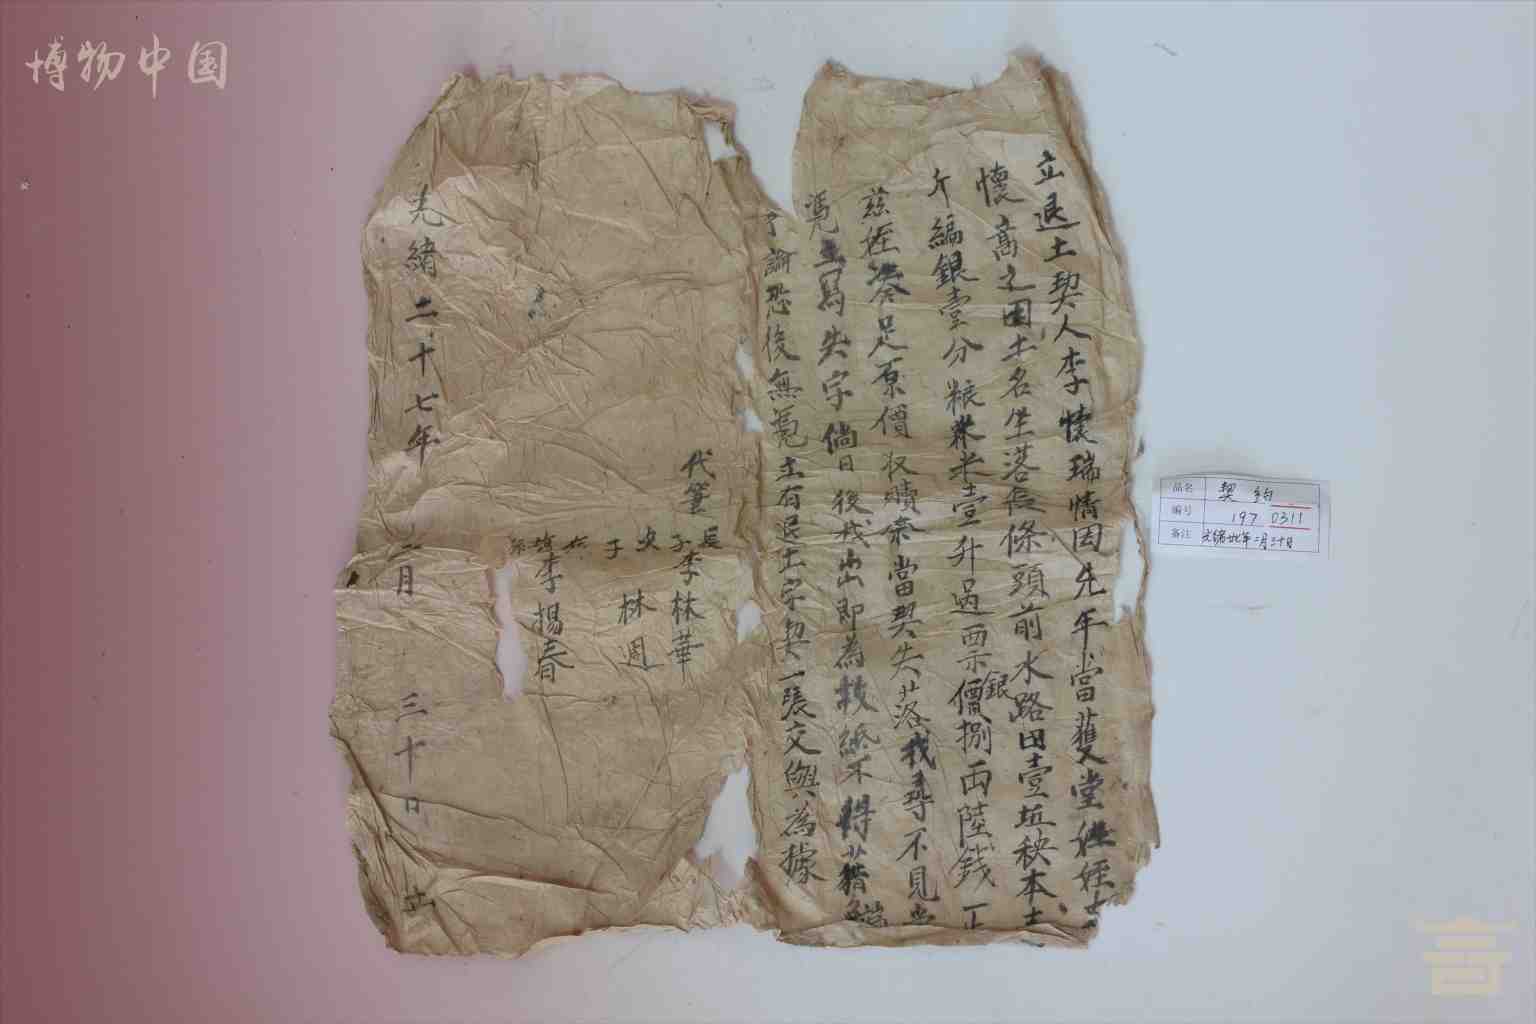 博物中国
立退土契人李懷瑞情因先年當獲堂姪姪
懷高之田土名坐落長條頭前水路田壹坵秧本
斤編銀壹分粮米壹升過票價銀捌両陸錢正
茲姪湊足原價收贖奈當契失落我尋不見
憑立寫失字倘日後我出即為故紙不得藉
論恐後無憑立有退土字契一張交與為據
代筆
長子李林華
次子林週
李楊春
光緒二十七年二月三十日立
品名 契约
编号 197 0311
备注 光绪廿七年二月三十日